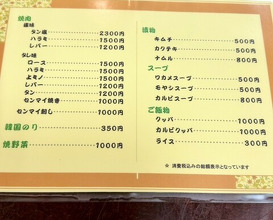 焼肉
塩味
タン塩 2300円
ハラミ 1500円
レバー 1200円
タレ味
ロース 1500円
ハラミ 1500円
上ミノ 1500円
レバー 1200円
タン 1200円
センマイ焼き 1000円
センマイ刺し 1000円
韓国のり 350円
焼野菜 1000円
漬物
キムチ 500円
カクテキ 500円
ナムル 800円
スープ
ワカメスープ 500円
モヤシスープ 500円
カルビスープ 800円
ご飯物
クッパ 1000円
カルビクッパ 1000円
ライス 300円
※ 消費税込みの総額表示となっています